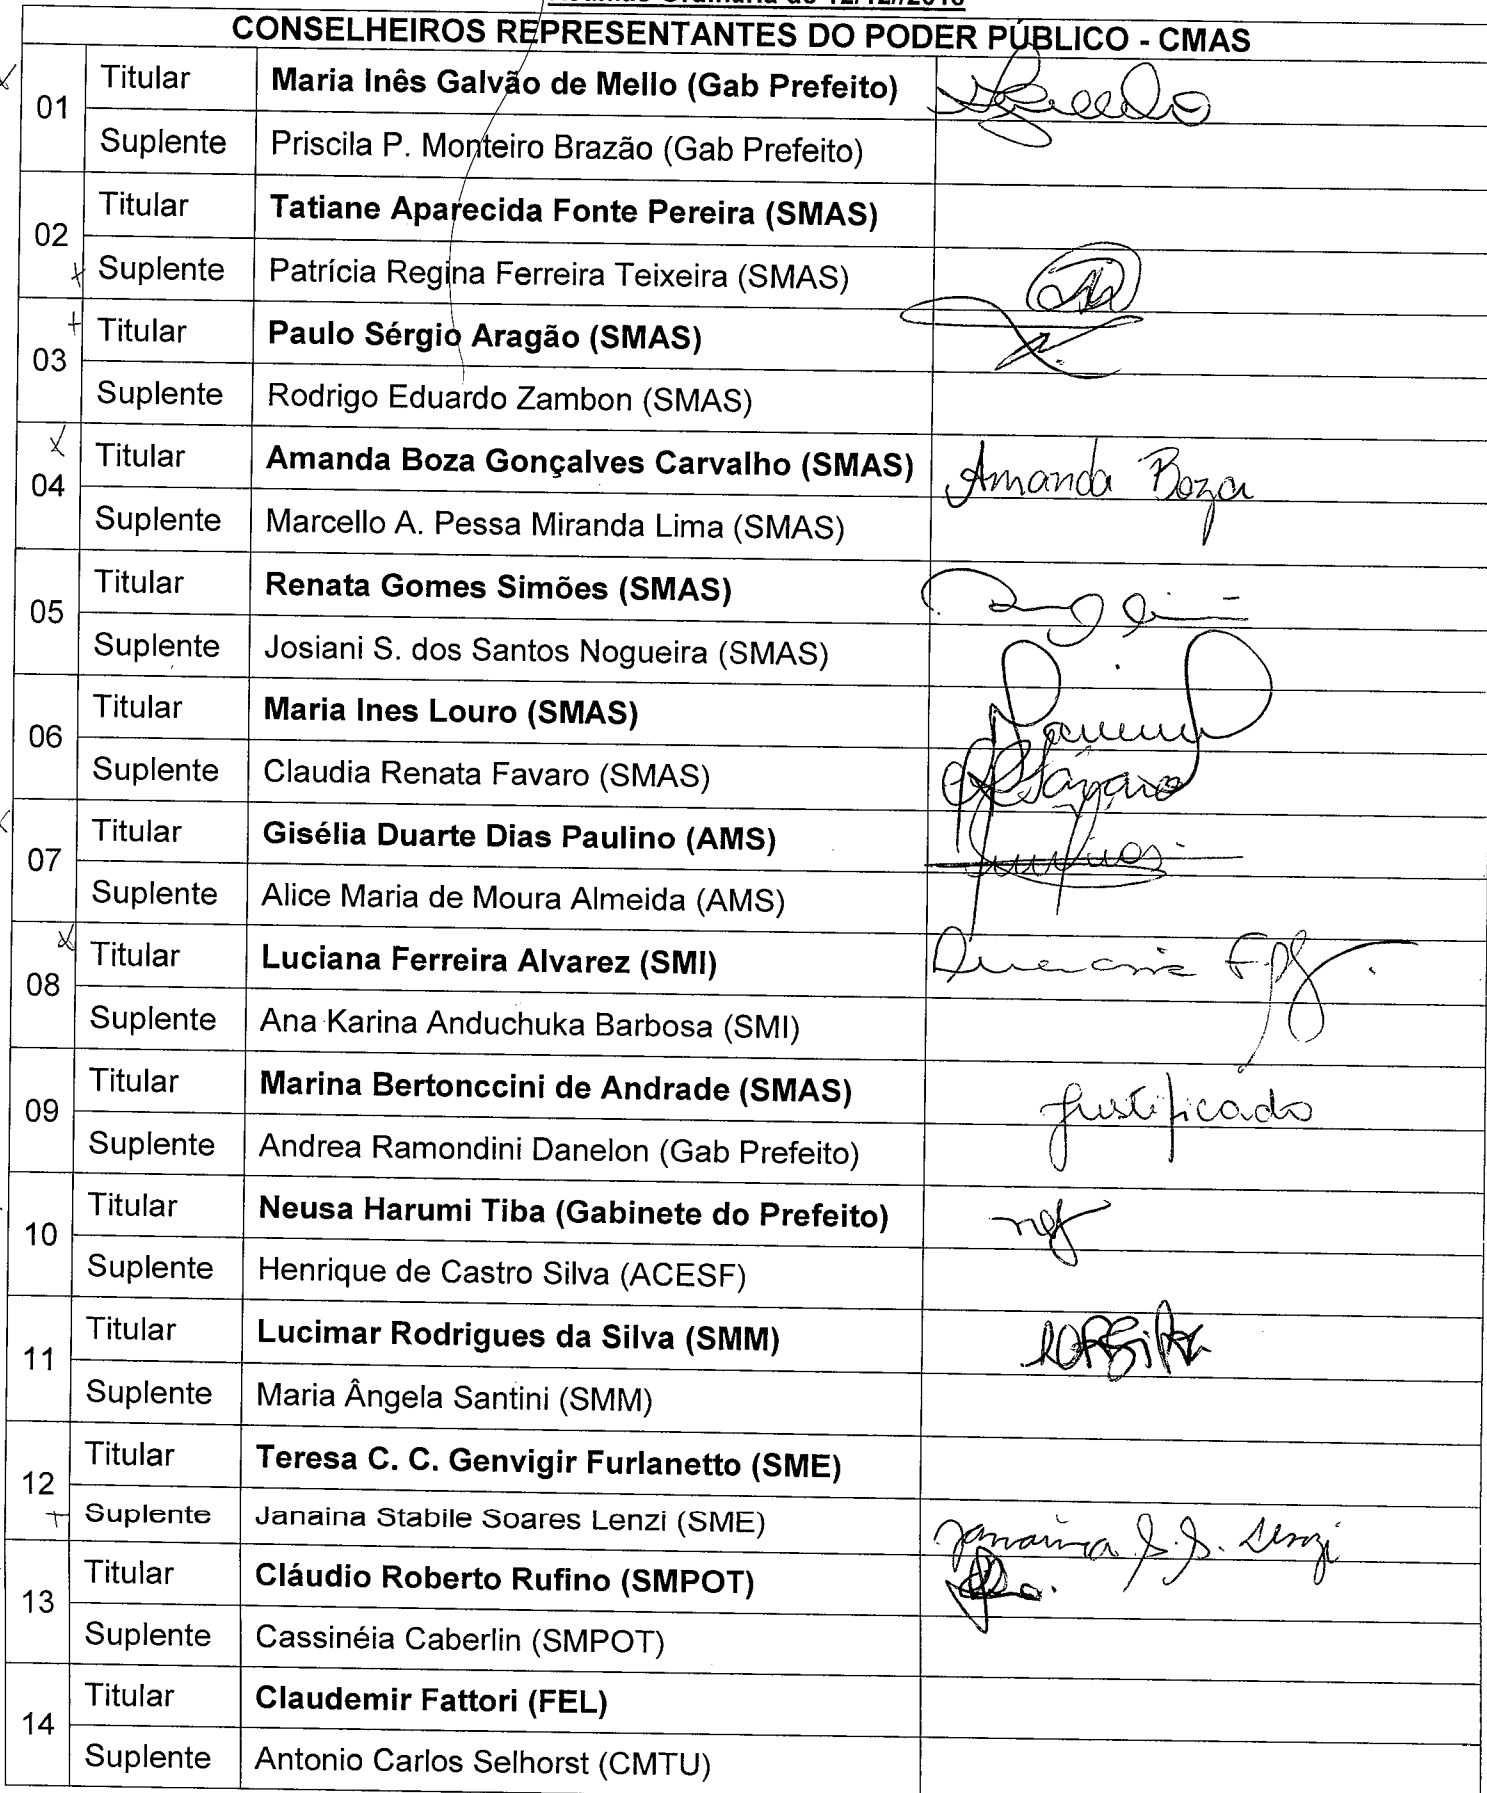 CONSELHEIROS REPRESENTANTES DO PODER PÚBLICO - CMAS
01
Titular Maria Inês Galvão de Mello (Gab Prefeito)
Suplente Priscila P. Monteiro Brazão (Gab Prefeito)
02
Titular Tatiane Aparecida Fonte Pereira (SMAS)
Suplente Patrícia Regina Ferreira Teixeira (SMAS)
03
Titular Paulo Sérgio Aragão (SMAS)
Suplente Rodrigo Eduardo Zambon (SMAS)
04
Titular Amanda Boza Gonçalves Carvalho (SMAS) Amanda Boza
Suplente Marcello A. Pessa Miranda Lima (SMAS)
05
Titular Renata Gomes Simões (SMAS)
Suplente Josiani S. dos Santos Nogueira (SMAS)
06
Titular Maria Ines Louro (SMAS)
Suplente Claudia Renata Favaro (SMAS)
07
Titular Gisélia Duarte Dias Paulino (AMS)
Suplente Alice Maria de Moura Almeida (AMS)
08
Titular Luciana Ferreira Alvarez (SMI)
Suplente Ana Karina Anduchuka Barbosa (SMI)
09
Titular Marina Bertonccini de Andrade (SMAS) justificado
Suplente Andrea Ramondini Danelon (Gab Prefeito)
10
Titular Neusa Harumi Tiba (Gabinete do Prefeito)
Suplente Henrique de Castro Silva (ACESF)
11
Titular Lucimar Rodrigues da Silva (SMM)
Suplente Maria Ângela Santini (SMM)
12
Titular Teresa C. C. Genvigir Furlanetto (SME)
Suplente Janaina Stabile Soares Lenzi (SME) Janaina S. S. Lenzi
13
Titular Cláudio Roberto Rufino (SMPOT)
Suplente Cassinéia Caberlin (SMPOT)
14
Titular Claudemir Fattori (FEL)
Suplente Antonio Carlos Selhorst (CMTU)